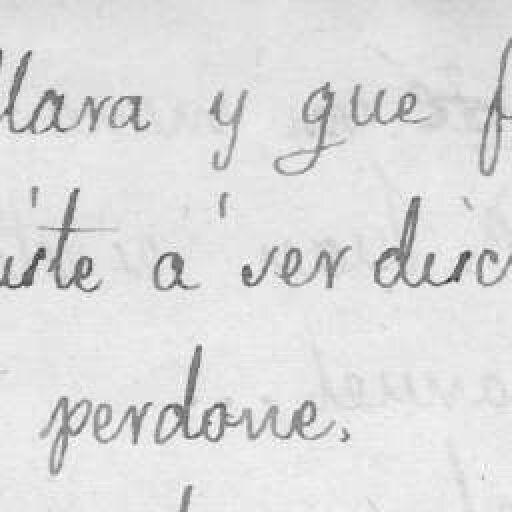 llara y que f
iste a ver disc
perdone.